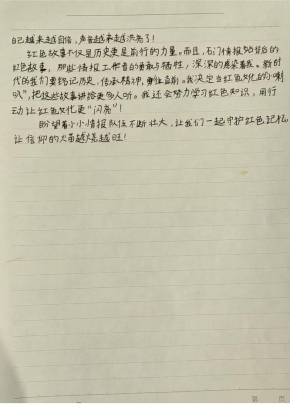 自己越来越自信，声音越来越洪亮了！
红色故事不仅是历史更是前行的力量。而且，石门情报站背后的
红色故事，那些情报工作者的勇敢与牺牲，深深的感染着我。新时
代的我们要铭记历史，传承精神，勇往直前。我决定当红色文化的"小喇
叭"，把这些故事讲给更多人听。我还会努力学习红色知识，用行
动让红色文化更"闪亮"！
盼望着小小情报队伍不断壮大，让我们一起守护红色记忆
让信仰的火苗越烧越旺！
第 页